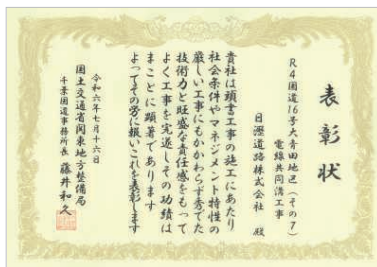 表彰状
R4国道16号大青田地区(その7)
電線共同溝工事
日瀝道路株式会社 殿
貴社は頭書工事の施工にあたり
社会条件やマネジメント特性の
厳しい工事にもかかわらず秀でた
技術力と旺盛な責任感をもって
よく工事を完遂しその功績は
まことに顕著であります
よってその労に報いこれを表彰します
令和六年七月十六日
国土交通省関東地方整備局
千葉国道事務所長 藤井和久